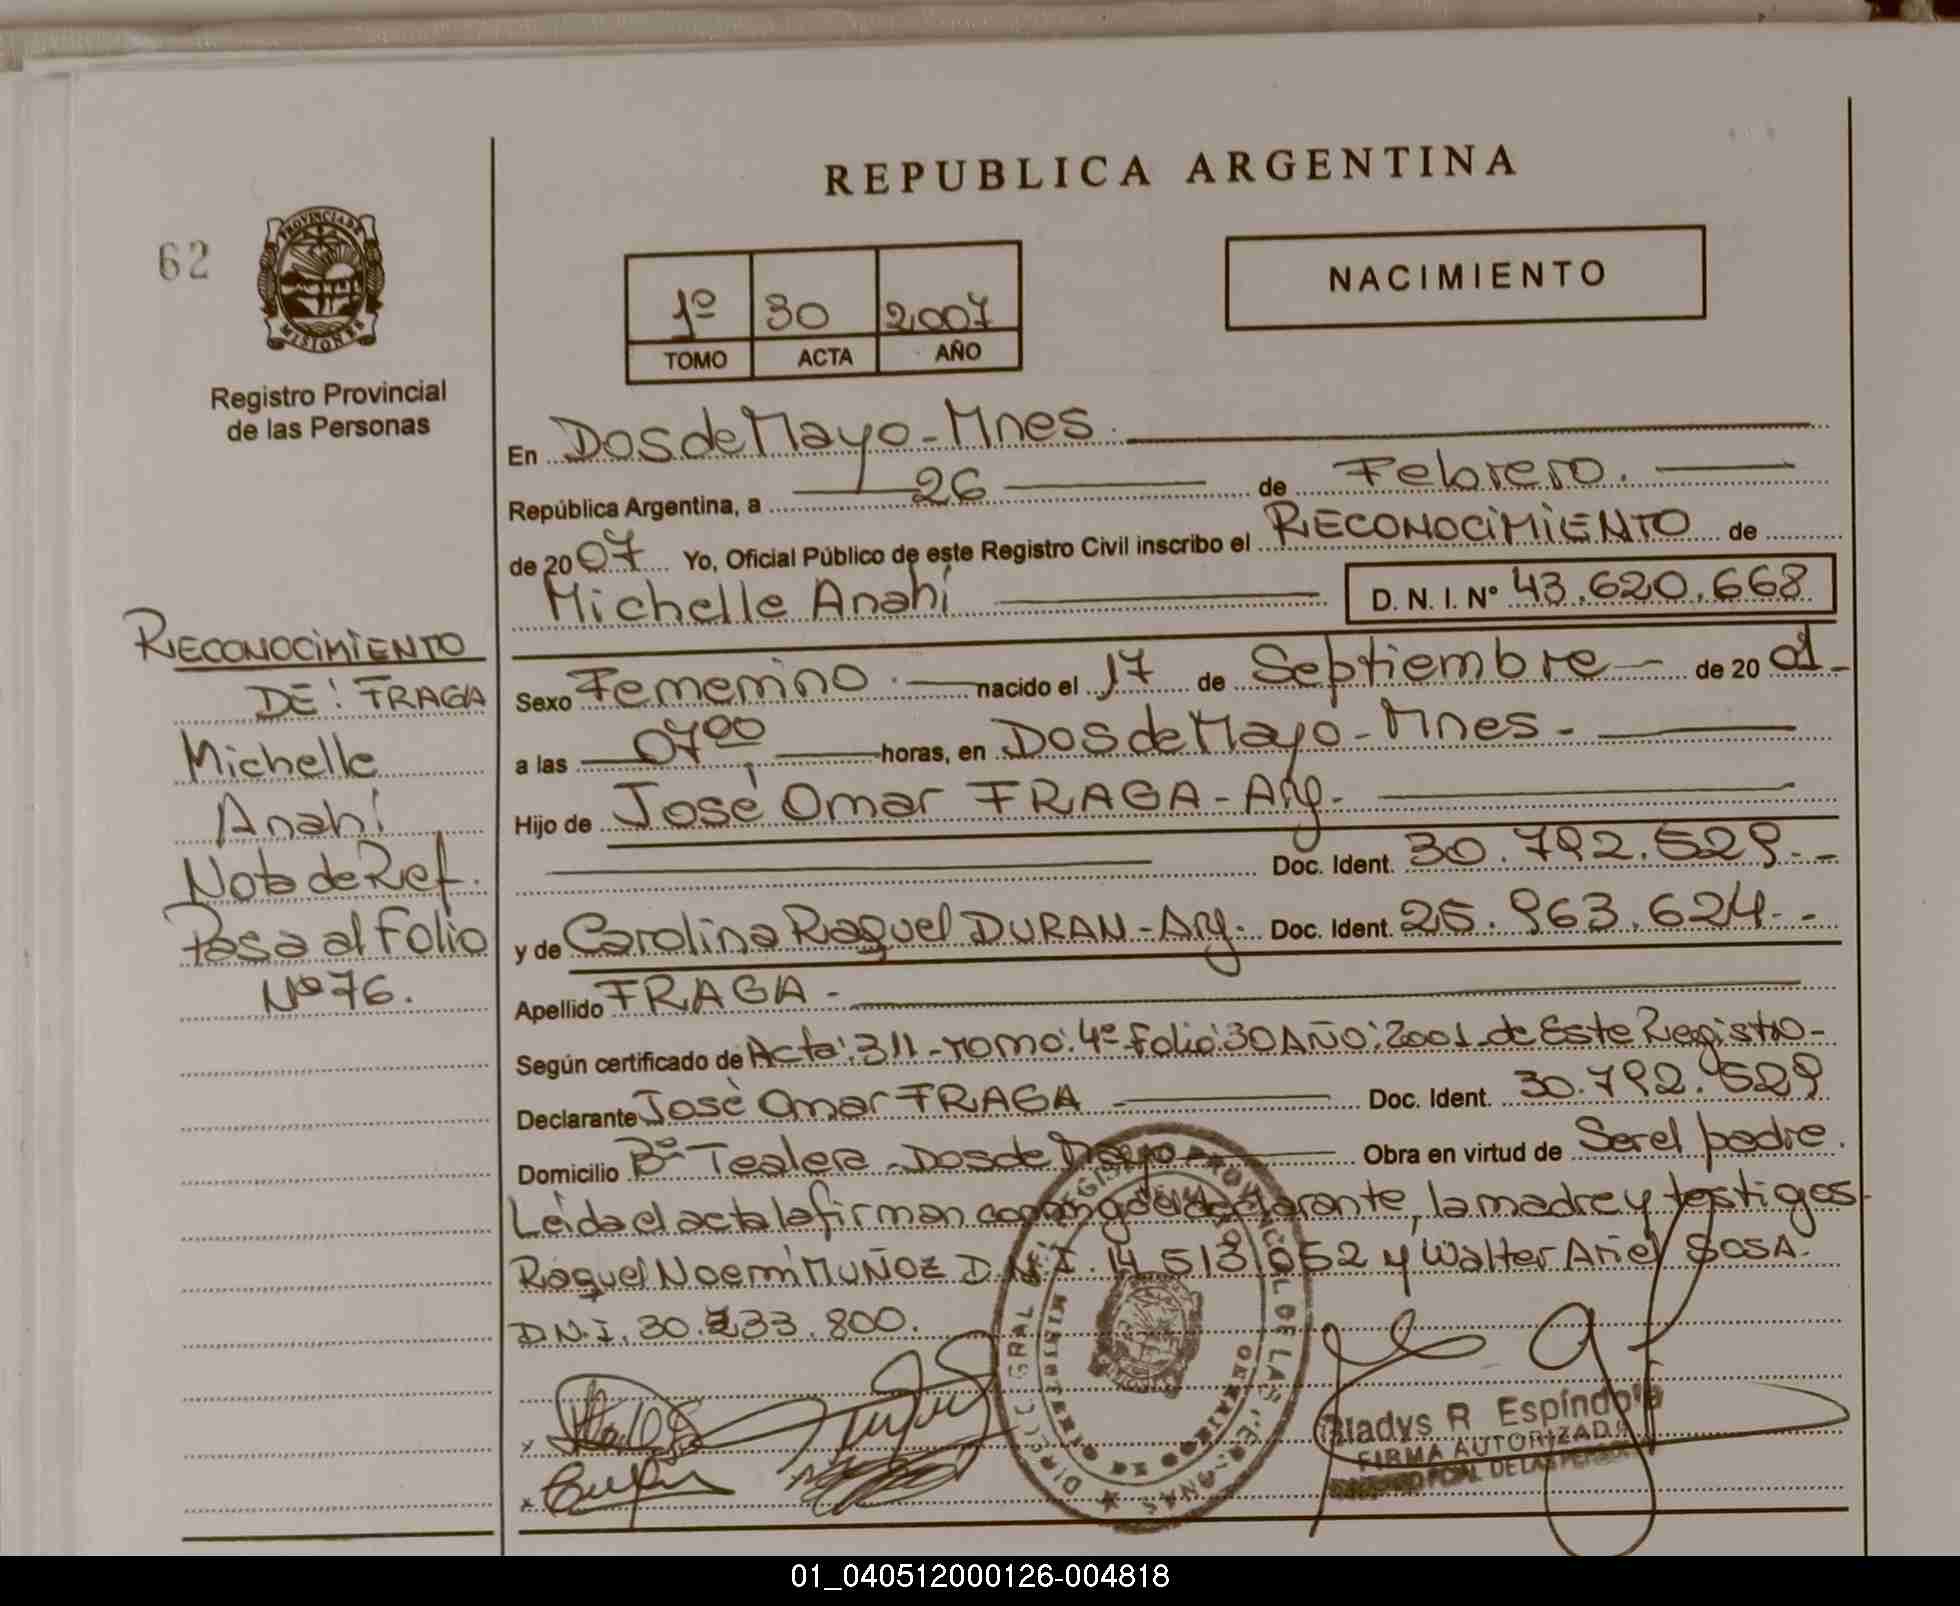 REPUBLICA ARGENTINA
62
PROVINCIA DE
MISIONES
Registro Provincial
de las Personas
1º 30 2007
TOMO ACTA AÑO
NACIMIENTO
En Dos de Mayo - Mnes.
República Argentina, a 26 de Febrero.
de 2007 Yo, Oficial Público de este Registro Civil inscribo el RECONOCIMIENTO de
Michelle Anahí D. N. I. Nº 43.620.668
RECONOCIMIENTO
DE: FRAGA
Michelle
Anahí
Nota de Ref.
Pasa al Folio
Nº 76.
Sexo Femenino. nacido el 17 de Septiembre de 2001
a las 07 00 horas, en Dos de Mayo - Mnes -
Hijo de José Omar FRAGA - Arg.
Doc. Ident. 30.792.529.-
y de Carolina Raquel DURAN - Arg. Doc. Ident. 25.963.624.-
Apellido FRAGA -
Según certificado de Acta: 311 - Tomo: 4º Folio: 30 AÑO: 2001 de Este Registro -
Declarante José Omar FRAGA Doc. Ident. 30.792.529
Domicilio Bº Tealera - Dos de Mayo - Obra en virtud de Ser el padre.
Leída el acta la firman conmigo el declarante, la madre y testigos
Raquel Noemi MUÑOZ D.N.I. 14.513.052 y Walter Ariel SOSA.
D.N.I. 30.233.800.
Gladys R. Espíndola
FIRMA AUTORIZADA
01_040512000126-004818